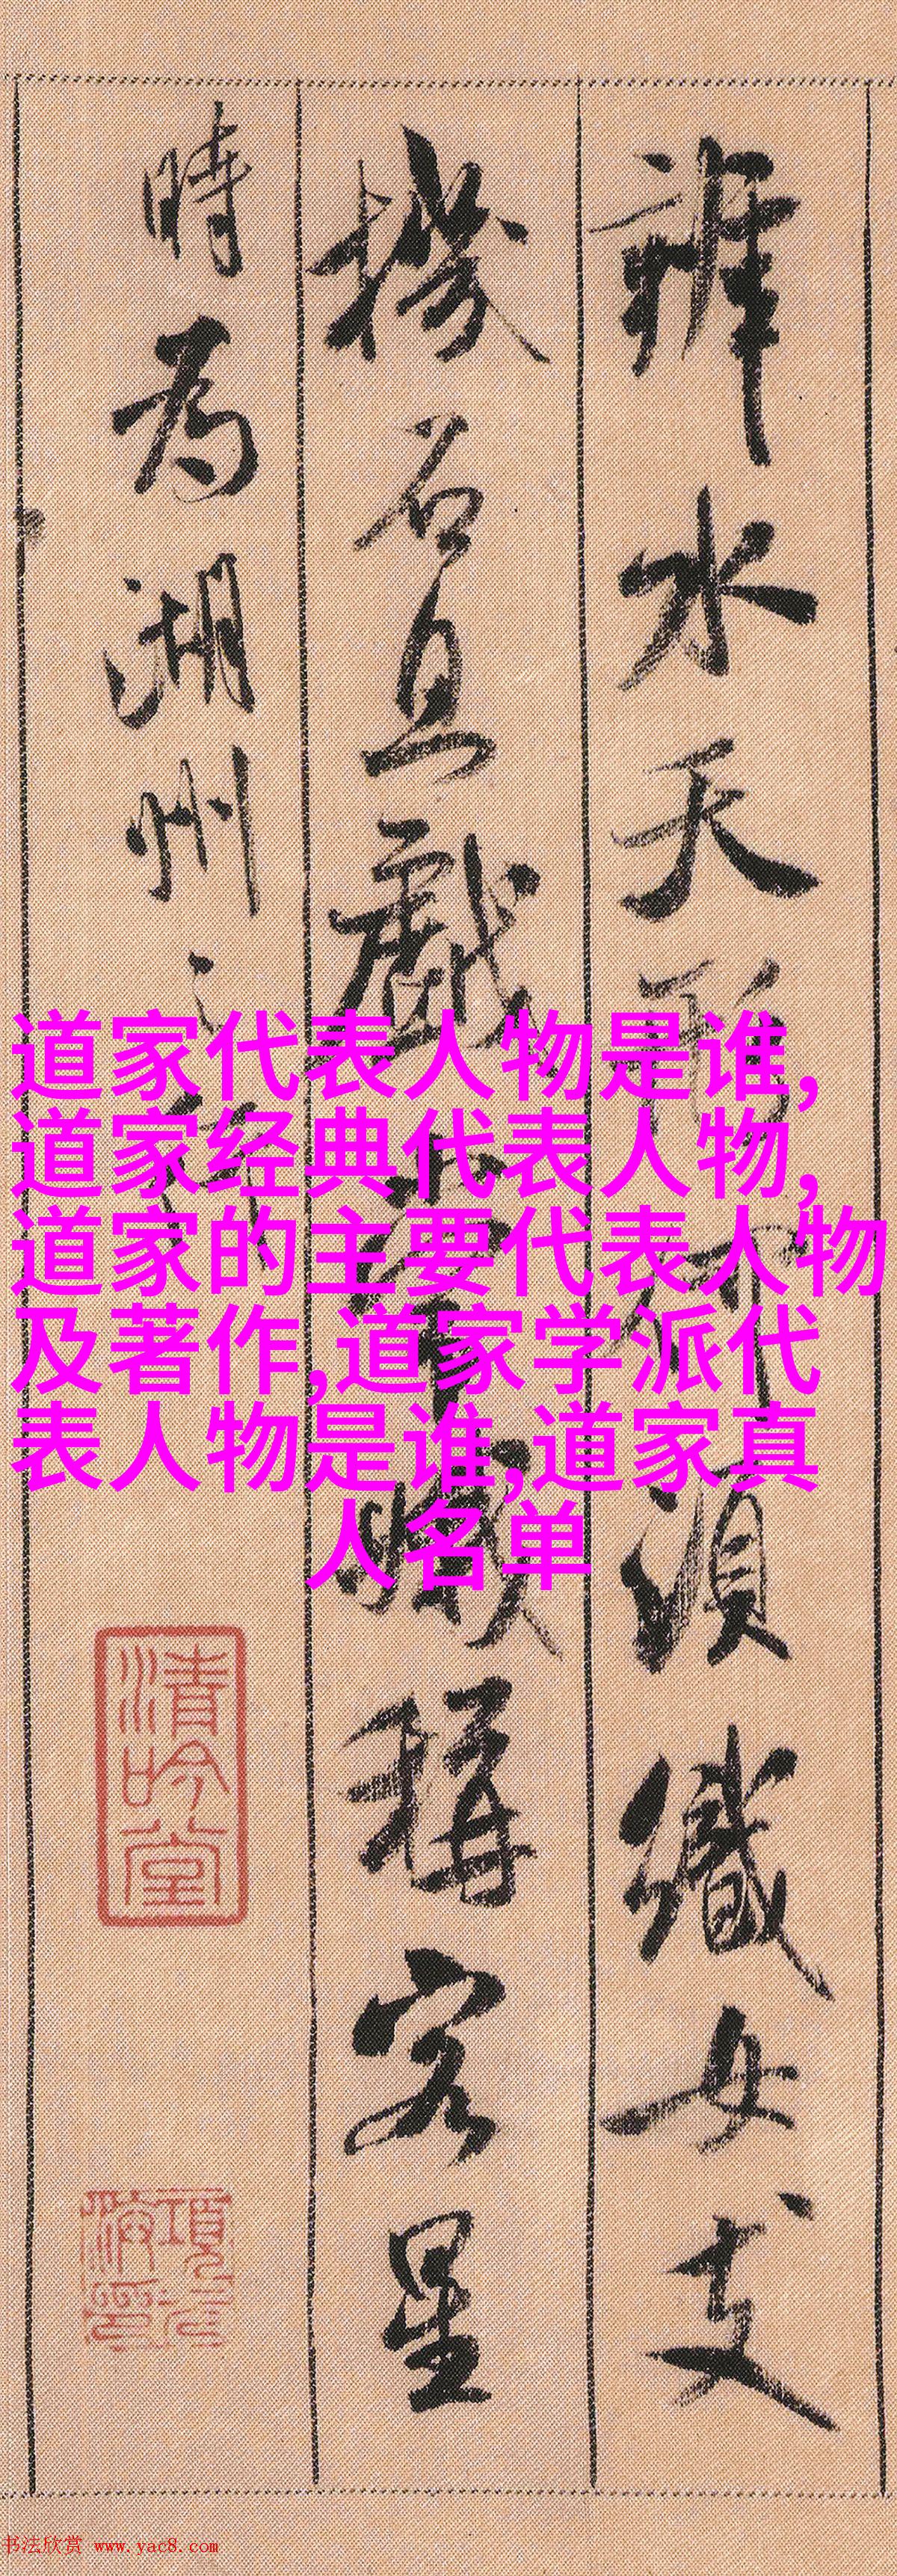 辨水天形何須織女支
機石且戲常娥稱客星
時為湖州之行
道家代表人物是谁,
道家经典代表人物,
道家的主要代表人物
及著作,道家学派代
表人物是谁,道家真
人名单
清吟堂
书法欣赏 www.yac8.com